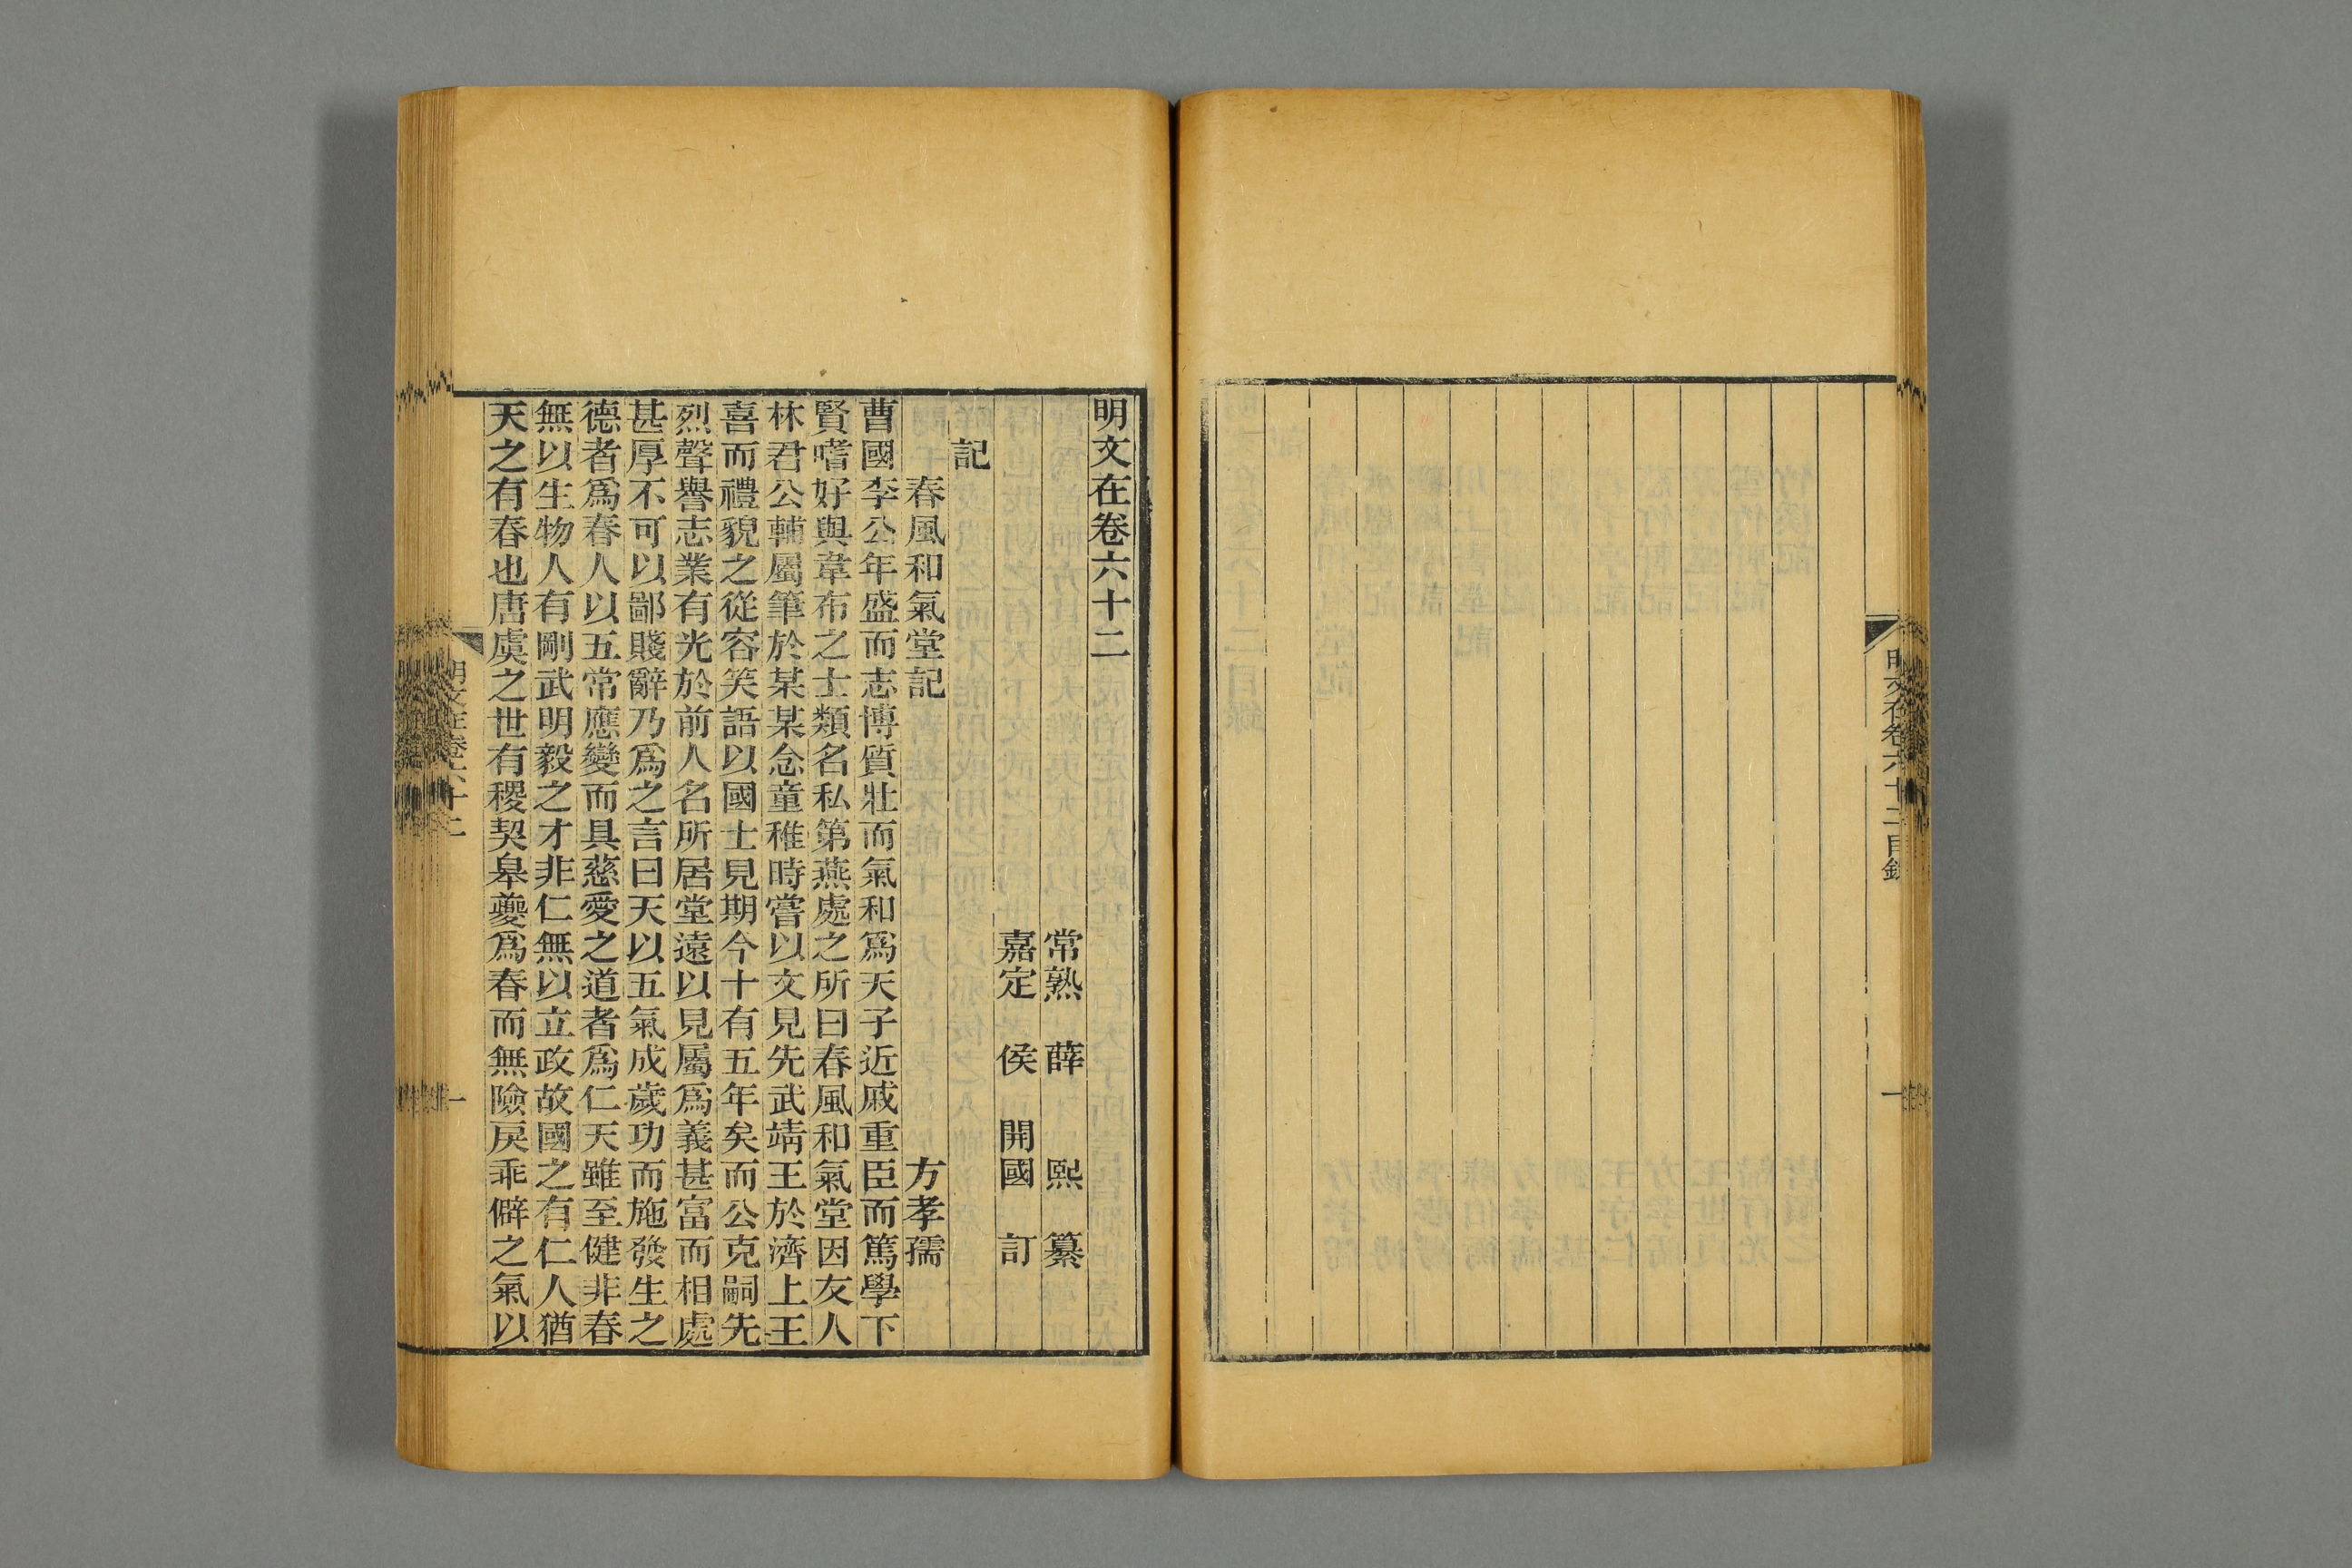 明文在卷六十二目錄
一
明文在卷六十二
常熟 薛 熙 纂
嘉定 侯 開國 訂
記
春風和氣堂記 方孝孺
曹國李公年盛而志博質壯而氣和爲天子近戚重臣而篤學下
賢嗜好與韋布之士類名私第燕處之所曰春風和氣堂因友人
林君公輔屬筆於某某念童稚時嘗以文見先武靖王於濟上王
喜而禮貌之從容笑語以國士見期今十有五年矣而公克嗣先
烈聲譽志業有光於前人名所居堂遠以見屬爲義甚富而相處
甚厚不可以鄙賤辭乃爲之言曰天以五氣成歲功而施發生之
德者爲春人以五常應變而具慈愛之道者爲仁天雖至健非春
無以生物人有剛武明毅之才非仁無以立政故國之有仁人猶
天之有春也唐虞之世有稷契皋夔爲春而無險戾乖僻之氣以
明文在卷六十二
一